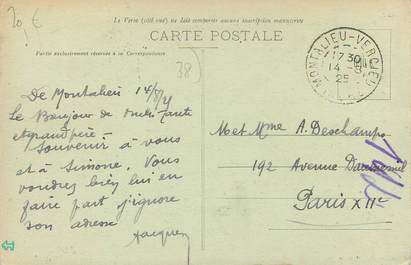 20 €
Le Verso (côté vue) ne doit comporter aucune inscription manuscrite
CARTE POSTALE
Partie exclusivement réservée à la Correspondance
38
MONTALIEU-VERCIEU
17 30
14
25
De Montalieu 14/8/25
Le Bonjour de tante
et grand père.
Souvenir à vous
et à Simone. Vous
voudrez bien lui en
faire part j'ignore
son adresse
Jacques
M et Mme A. Deschamps
192 Avenue Daumesnil
Paris XIIe